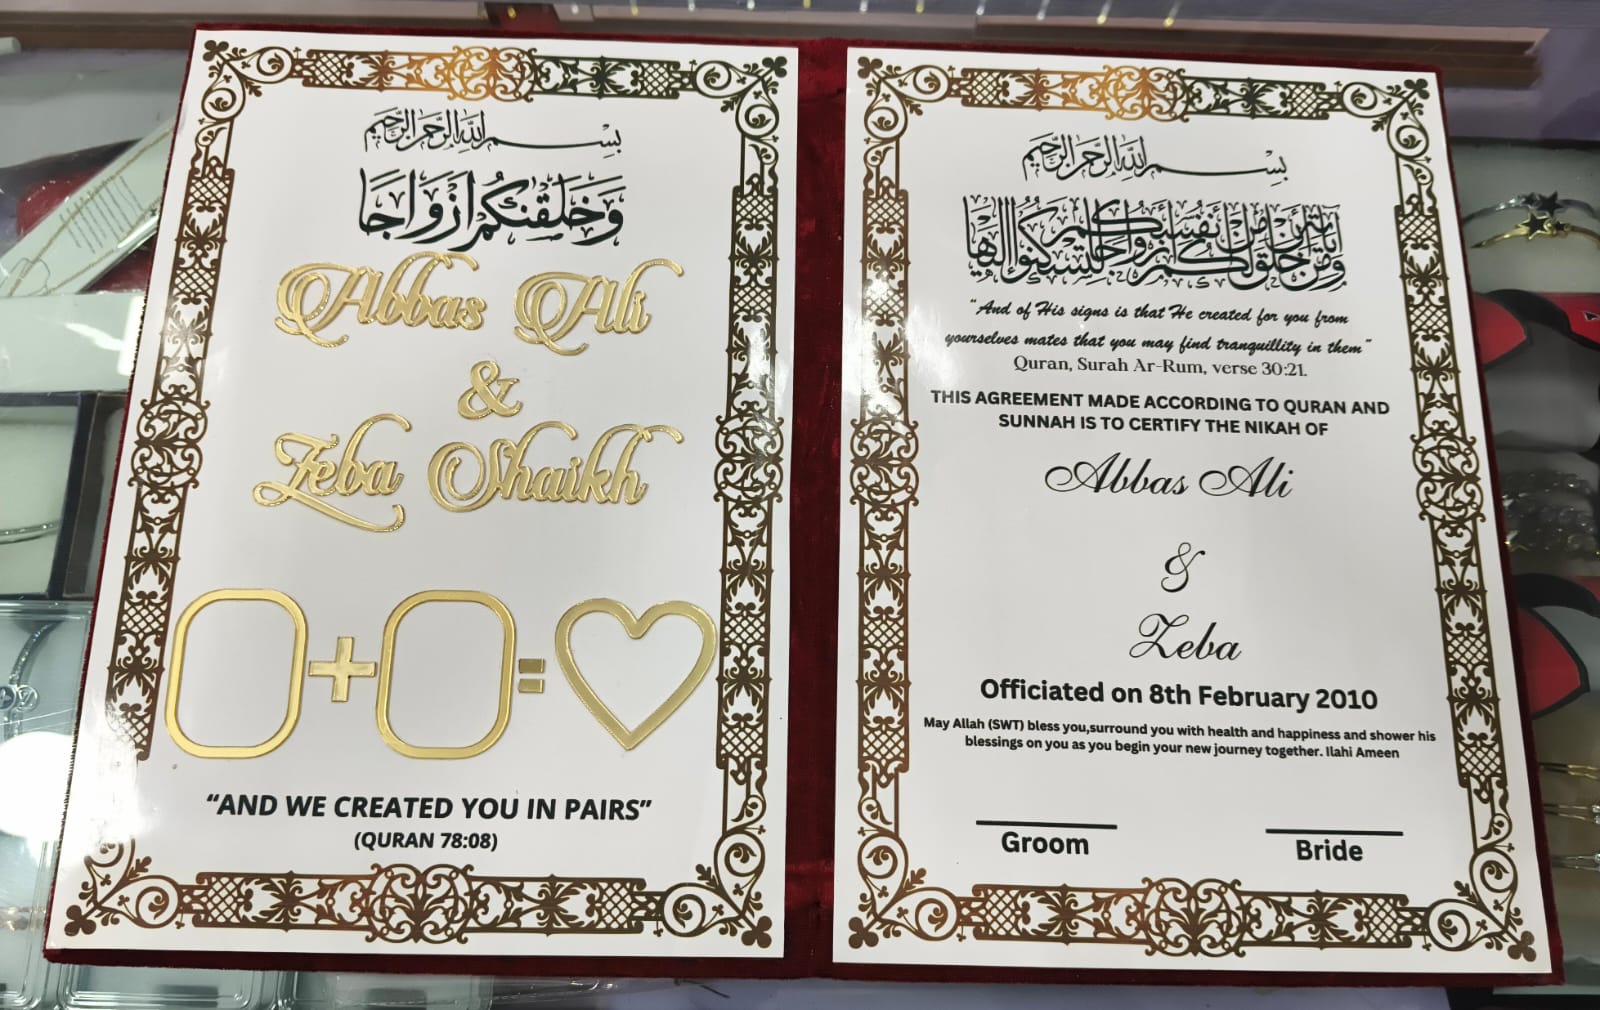 بسم الله الرحمن الرحيم
وَخَلَقْنَكُمْ أَزْوَاجًا
Abbas Ali
&
Zeba Shaikh
+ =
“AND WE CREATED YOU IN PAIRS”
(QURAN 78:08)
بسم الله الرحمن الرحيم
ومن آياته أن خلق لكم من أنفسكم أزواجا لتسكنوا إليها
“And of His signs is that He created for you from
yourselves mates that you may find tranquillity in them”
Quran, Surah Ar-Rum, verse 30:21.
THIS AGREEMENT MADE ACCORDING TO QURAN AND
SUNNAH IS TO CERTIFY THE NIKAH OF
Abbas Ali
&
Zeba
Officiated on 8th February 2010
May Allah (SWT) bless you,surround you with health and happiness and shower his
blessings on you as you begin your new journey together. Ilahi Ameen
Groom
Bride